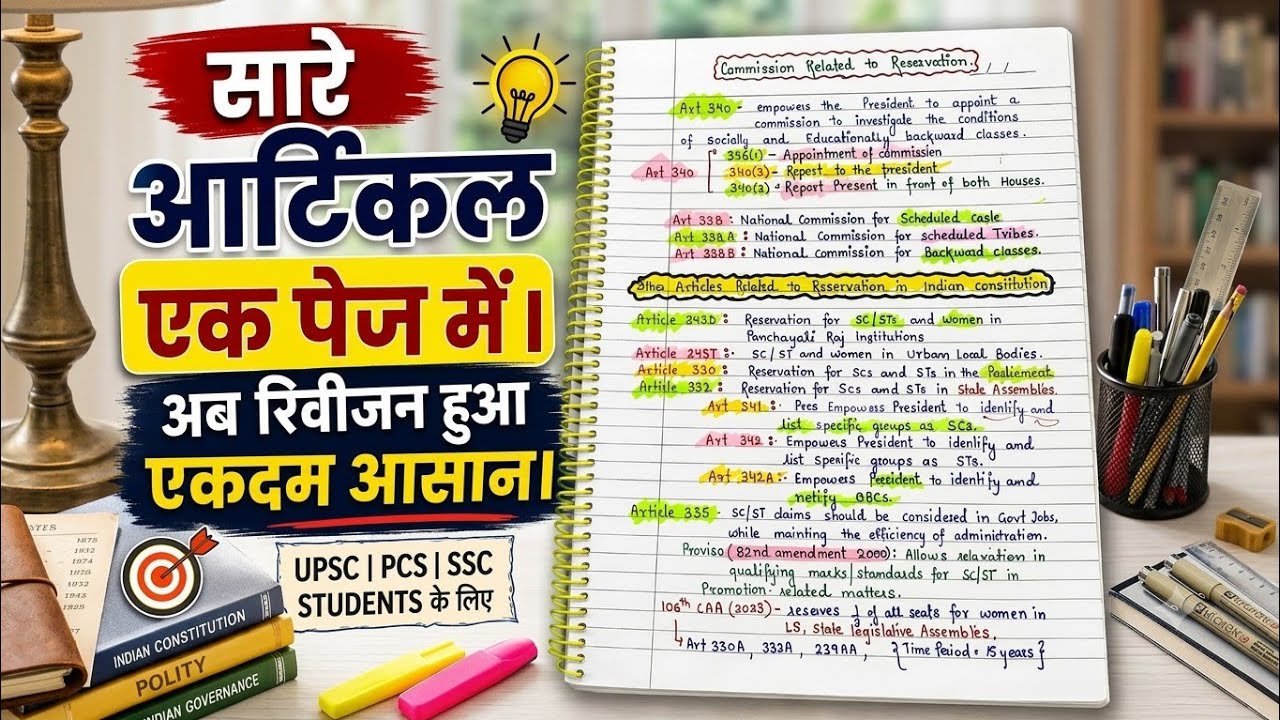 सारे
आर्टिकल
एक पेज में।
अब रिवीजन हुआ
एकदम आसान।
UPSC | PCS | SSC
STUDENTS के लिए
INDIAN CONSTITUTION
POLITY
INDIAN GOVERNANCE
1932
1974
Commission Related to Reservation.
Art 340 - empowers the President to appoint a
commission to investigate the conditions
of socially and Educationally backward classes.
356(1) - Appointment of commission
Art 340
340(3) - Repest to the president
340(3) - Report Present in front of both Houses.
Art 33B : National Commission for Scheduled casle
Art 338A : National Commission for scheduled Tribes.
Art 338B : National Commission for Backward classes.
Articles Related to Rservation in Indian consiitution
Article 243.D : Reservation for SC/STs and women in
Panchayali Raj Institutions
Article 24ST :- SC/ST and women in Urban local Bodies.
Article 330 : Reservation for SCs and STs in the Pasliemeat.
Article 332 : Reservation for Scs and STs in Stale Assembles.
Art S41 : Pees Empowess President to identify and
list specific groups as SCs.
Art 342 : Empowers President to identify and
list spenific groups as STs.
Art 342A : Empowers Peeeident to identify and
netify OBCs.
Article 335 - SC/ST claims should be considered in Govt Jobs,
while mainting the efficiency of administration.
Proviso (82nd amendment 2000): Allows relaxation in
qualifying marks/standards for SC/ST in
Promotion - related matters.
106th CAA (2023) - reserves of all seats for women in
LS, State legislative Assembles.
Art 330A, 332A, 239AA, { Time Period = 15 years }